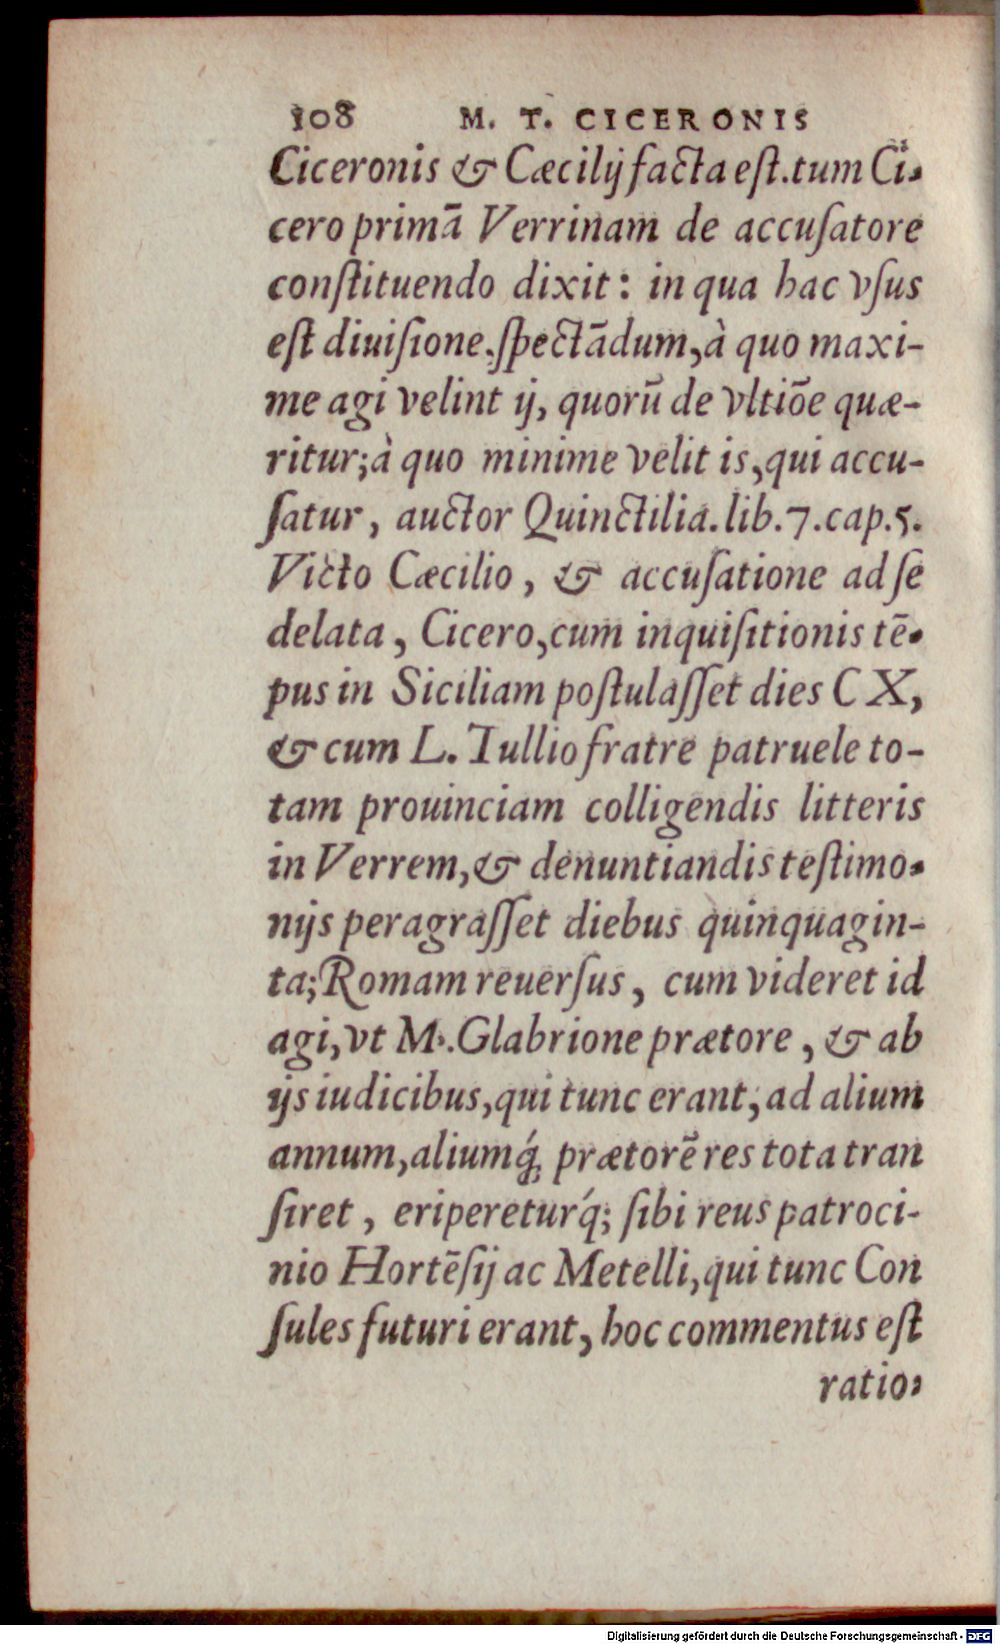 108 M. T. CICERONIS
Ciceronis & Cæcilij facta eſt. tum Ci-
cero primã Verrinam de accuſatore
conſtituendo dixit: in qua hac vſus
eſt diuiſione. ſpectãdum, à quo maxi-
me agi velint ij, quorũ de vltiõe quæ-
ritur; à quo minime velit is, qui accu-
ſatur, auctor Quinctilia. lib. 7. cap. 5.
Victo Cæcilio, & accuſatione ad ſe
delata, Cicero, cum inquiſitionis tẽ-
pus in Siciliam poſtulaſſet dies CX,
& cum L. Tullio fratre patruele to-
tam prouinciam colligendis litteris
in Verrem, & denuntiandis teſtimo-
nijs peragraſſet diebus quinquagin-
ta; Romam reuerſus, cum videret id
agi, vt M'. Glabrione prætore, & ab
ijs iudicibus, qui tunc erant, ad alium
annum, aliumq́; prætorẽ res tota tran
ſiret, eripereturq́; ſibi reus patroci-
nio Hortẽſij ac Metelli, qui tunc Con
ſules futuri erant, hoc commentus eſt
ratio-
Digitalisierung gefördert durch die Deutsche Forschungsgemeinschaft - DFG